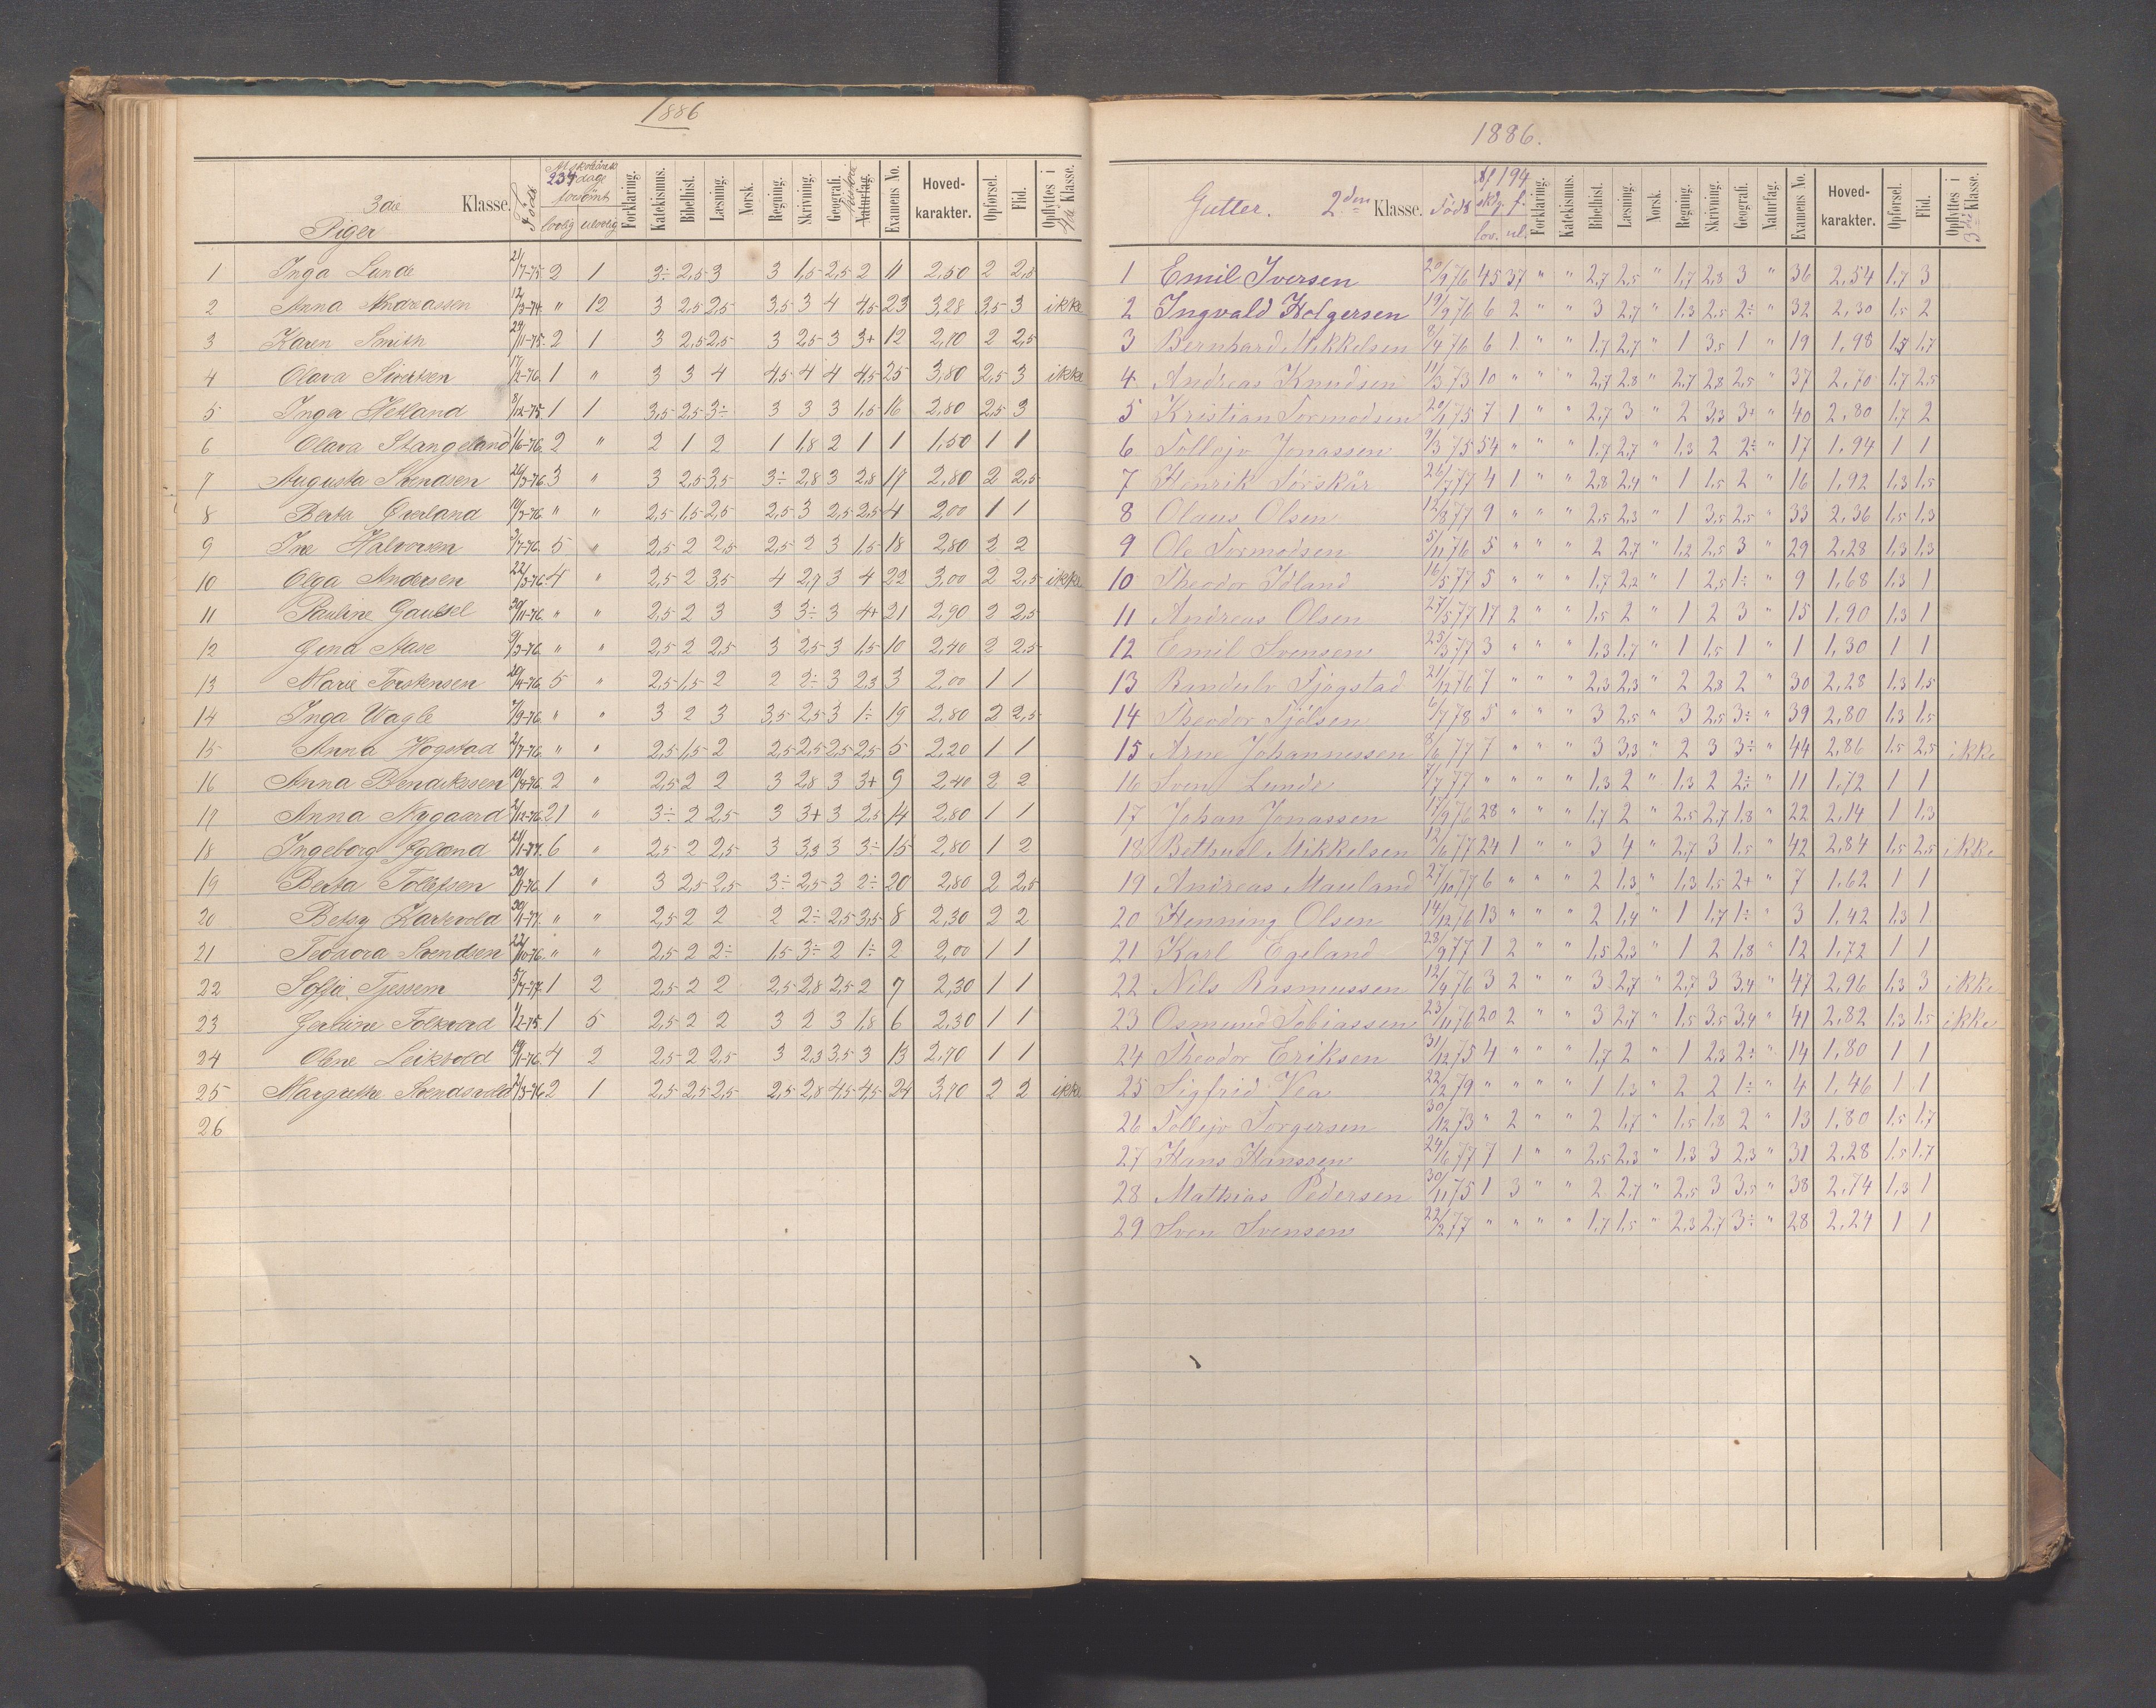 1886
3die Klasse.
Piger
Født
Af skoleårets
234 dage
forsømt
lovlig ulovlig
Forklaring. Katekismus. Bibelhist. Læsning. Norsk. Regning. Skrivning. Geografi. Historie Naturfag. Examens No. Hoved-karakter. Opførsel. Flid. Opflyttes i 4de Klasse.
1 Inga Lunde 21/7-75 2 1 3÷ 2,5 3 3 1,5 2,5 2 11 2,50 2 2,5
2 Anna Andreassen 12/3-74 " 12 3 2,5 2,5 3,5 3 4 4,5 23 3,28 3,5 3 ikke
3 Karen Smith 29/11-75 2 1 3 2,5 2,5 3 2,5 3 3+ 12 2,70 2 2,5
4 Olava Sivertsen 17/12-76 1 " 3 3 4 4,5 4 4 4,5 25 3,80 2,5 3 ikke
5 Inger Hetland 8/12-75 1 1 3,5 2,5 3÷ 3 3 3 1,5 16 2,80 2,5 3
6 Olava Stangeland 1/6-76 2 " 2 1 2 1 1,8 2 1 1 1,50 1 1
7 Augusta Svendsen 26/3-76 3 " 3 2,5 3,5 3÷ 2,8 3 2,8 17 2,80 2 2,5
8 Berta Øverland 10/3-76 " " 2,5 1,5 2,5 2,5 3 2,5 2,5 4 2,00 1 1
9 Ine Halvorsen 3/7-76 5 " 2,5 2 2,5 2,5 2 3 1,5 18 2,80 2 2
10 Olga Andersen 22/3-76 4 " 2,5 2 3,5 4 2,7 3 4 22 3,00 2 2,5 ikke
11 Pauline Gausel 30/11-76 " " 2,5 2 3 3 3÷ 3 4+ 21 2,90 2 2,5
12 Gena Aase 9/3-76 " " 2,5 2 2,5 3 2,5 3 1,5 10 2,40 2 2,5
13 Marie Torstensen 20/4-76 5 " 2,5 1,5 2 2 2÷ 3 2,3 3 2,00 1 1
14 Inga Vagle 7/9-76 " " 3 2 3 3,5 2,5 3 1÷ 19 2,80 2 2,5
15 Anna Høgstad 2/7-76 " " 2,5 1,5 2 2,5 2,5 2,5 2,5 5 2,20 1 1
16 Anna Bendiksen 10/8-76 2 " 2,5 2 2 3 2,8 3 3+ 9 2,40 2 2
17 Anna Nygaard 2/12-76 21 " 3÷ 2 2,5 3 3+ 3 2,5 14 2,80 1 1
18 Ingeborg Igland 21/1-77 6 " 2,5 2 2,5 3 3,3 3 3÷ 15 2,80 1 2
19 Berta Tollefsen 1 " 3 2,5 2,5 3÷ 2,5 3 2÷ 20 2,80 2 2,5
20 Betsy Karsvold 30/1-77 " " 2,5 2 2 2 2÷ 2,5 3,5 8 2,30 2 2
21 Teodora Svendsen 22/10-76 " " 2,5 2 2÷ 1,5 3÷ 2 1÷ 2 2,00 1 1
22 Sofie Tjessem 5/7-77 1 2 2,5 2 2 2,5 2,8 2,5 2 7 2,30 1 1
23 Gertine Folkvord 1/2-75 1 5 2,5 2 2 3 2 3 1,8 6 2,30 1 1
24 Oline Leikvold 19/1-76 4 2 2,5 2 2,5 3 2,3 3,5 3 13 2,70 1 1
25 Margrethe Svendsvold 7/3-76 2 1 2,5 2,5 2,5 2,5 2,8 4,5 4,5 24 3,70 2 2 ikke
26
1886.
Gutter. 2den Klasse. Født Af 194 skdg. f. lov. ul. Forklaring. Katekismus. Bibelhist. Læsning. Norsk. Regning. Skrivning. Geografi. Naturfag. Examens No. Hoved-karakter. Opførsel. Flid. Opflyttes i 3die Klasse.
1 Emil Iversen 20/9 76 45 37 " " 2,7 2,5 " 1,7 2,8 3 " 36 2,54 1,7 3
2 Ingvald Holgersen 19/9 76 6 2 " " 3 2,7 " 1,3 2,5 2÷ " 32 2,30 1,5 2
3 Bernhard Mikkelsen 8/4 76 6 1 " " 1,7 2,7 " 1 3,5 1 " 19 1,98 1,7 1,7
4 Andreas Knudsen 11/3 73 10 " " " 2,7 2,8 " 2,7 2,8 2,5 " 37 2,70 1,7 2,5
5 Kristian Tormodsen 20/1 75 7 1 " " 2,7 3 " 2 3,3 3+ " 40 2,80 1,7 2
6 Tollejv Jonassen 9/3 75 54 " " " 1,7 2,7 " 1,3 2 2÷ " 17 1,94 1 1
7 Henrik Sørskår 26/7 77 4 1 " " 2,8 2,4 " 1 1,5 2 " 16 1,92 1,3 1,5
8 Olaus Olsen 12/8 77 9 " " " 2,5 2,3 " 1 3,5 2,5 " 33 2,36 1,5 1,3
9 Ole Tormodsen 5/11 76 5 " " " 2 2,7 " 1,2 2,5 3 " 29 2,28 1,3 1,3
10 Theodor Idland 16/5 77 5 " " " 1,7 2,2 " 1 2,5 1÷ " 9 1,68 1,3 1
11 Andreas Olsen 27/5 77 17 2 " " 1,5 2 " 1 2 3 " 15 1,90 1,3 1
12 Emil Svensen 23/3 77 3 " " " 1,3 1,7 " 1 1,5 1 " 1 1,30 1 1
13 Randulv Tjøgstad 21/12 76 7 " " " 2,3 2,3 " 2 2,8 2 " 30 2,28 1,3 1,5
14 Theodor Tjølsen 6/1 78 5 " " " 3 2,5 " 3 2,5 3÷ " 39 2,80 1,3 1,5
15 Arne Johannessen 8/6 77 7 " " " 3 3,3 " 2 3 3÷ " 44 2,86 1,5 2,5 ikke
16 Sven Lunde 7/7 77 " " " " 1,3 2 " 1,3 2 2÷ " 11 1,72 1 1
17 Johan Jonassen 17/9 76 28 " " " 1,7 2 " 2,5 2,7 1,8 " 22 2,14 1 1,3
18 Betthuel Mikkelsen 12/6 77 24 1 " " 3 4 " 2,7 3 1,5 " 42 2,84 1,5 2,5 ikke
19 Andreas Mauland 27/10 77 6 " " " 2 1,3 " 1,3 1,5 2+ " 7 1,62 1 1
20 Henning Olsen 14/12 76 13 " " " 2 1,4 " 1 1,7 1÷ " 3 1,42 1,3 1
21 Karl Egeland 28/9 77 1 2 " " 1,5 2,3 " 1 2 1,8 " 12 1,72 1 1
22 Nils Rasmussen 12/4 76 3 2 " " 3 2,7 " 2,7 3 3,4 " 47 2,96 1,3 3 ikke
23 Osmund Tobiassen 23/11 76 20 2 " " 3 2,7 " 1,5 3,5 3,4 " 41 2,82 1,3 1,5 ikke
24 Theodor Eriksen 31/12 75 4 " " " 1,7 2 " 1 2,3 2÷ " 14 1,80 1 1
25 Sigfrid Vea 22/2 79 " " " " 1 1,3 " 2 2 1÷ " 4 1,46 1 1
26 Tollejv Torgersen 30/12 73 " 2 " " 2 1,7 " 1,5 1,8 2 " 13 1,80 1,5 1,7
27 Hans Hanssen 24/6 77 7 1 " " 2,5 2,3 " 1,3 3 2,3 " 31 2,28 1,5 1,7
28 Mathias Pedersen 30/11 75 1 3 " " 2 2,7 " 2,5 3 3,5 " 38 2,74 1,3 1
29 Sven Svensen 22/2 77 " " " " 1,7 1,5 " 2,3 2,7 3÷ " 28 2,24 1 1